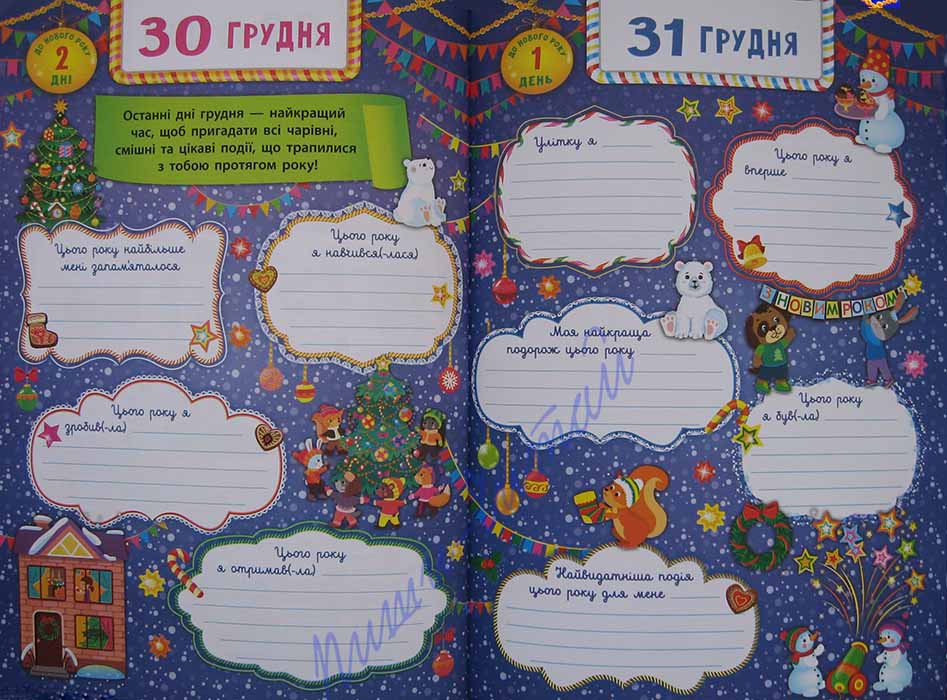 ДО НОВОГО РОКУ
2
ДНІ
30 ГРУДНЯ
Останні дні грудня — найкращий
час, щоб пригадати всі чарівні,
смішні та цікаві події, що трапилися
з тобою протягом року!
Цього року найбільше
мені запам'яталося
Цього року
я навчився(-лася)
Цього року я
зробив(-ла)
Цього року
я отримав(-ла)
ДО НОВОГО РОКУ
1
ДЕНЬ
31 ГРУДНЯ
Улітку я
Цього року я
вперше
З НОВИМ РОКОМ!
Моя найкраща
подорож цього року
Цього року
я був(-ла)
Найвидатніша подія
цього року для мене